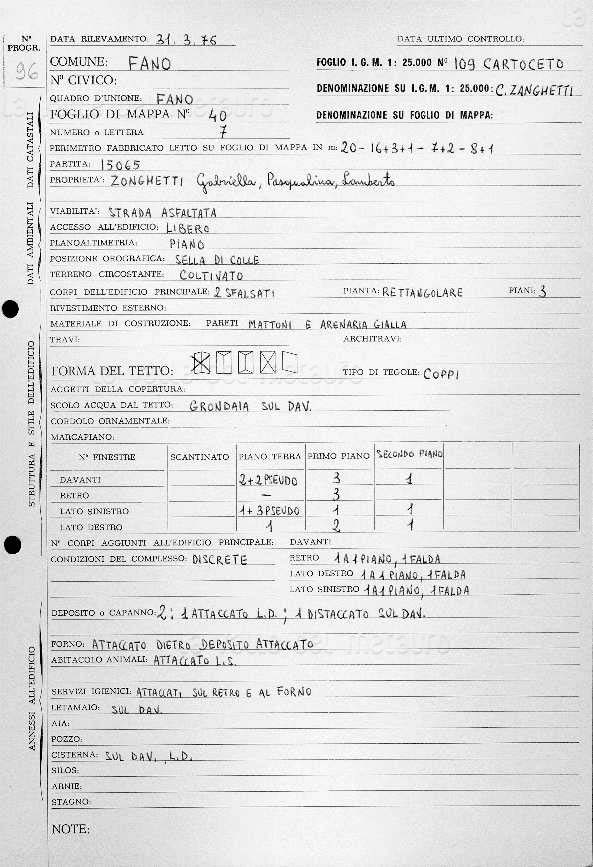 Nº PROGR.
96
DATA RILEVAMENTO: 31.3.76
DATA ULTIMO CONTROLLO:
COMUNE: FANO
FOGLIO I. G. M. 1: 25.000 Nº 109 CARTOCETO
Nº CIVICO:
DENOMINAZIONE SU I. G. M. 1: 25.000: C. ZANGHETTI
QUADRO D'UNIONE: FANO
FOGLIO DI MAPPA Nº 40
DENOMINAZIONE SU FOGLIO DI MAPPA:
NUMERO o LETTERA 7
PERIMETRO FABBRICATO LETTO SU FOGLIO DI MAPPA IN m: 20-16+3+1-7+2-8+1
PARTITA: 15065
PROPRIETA': ZONGHETTI Gabriella, Pasqualina, Lamberto
DATI AMBIENTALI DATI CATASTALI
VIABILITA': STRADA ASFALTATA
ACCESSO ALL'EDIFICIO: LIBERO
PLANOALTIMETRIA: PIANO
POSIZIONE OROGRAFICA: SELLA DI COLLE
TERRENO CIRCOSTANTE: COLTIVATO
CORPI DELL'EDIFICIO PRINCIPALE: 2 SFALSATI PIANTA: RETTANGOLARE PIANI: 3
RIVESTIMENTO ESTERNO:
MATERIALE DI COSTRUZIONE: PARETI MATTONI E ARENARIA GIALLA
TRAVI: ARCHITRAVI:
FORMA DEL TETTO: TIPO DI TEGOLE: COPPI
AGGETTI DELLA COPERTURA:
SCOLO ACQUA DAL TETTO: GRONDAIA SUL DAV.
CORDOLO ORNAMENTALE:
MARCAPIANO:
STRUTTURA E STILE DELL'EDIFICIO
Nº FINESTRE SCANTINATO PIANO TERRA PRIMO PIANO SECONDO PIANO
DAVANTI 2+2PSEUDO 3 1
RETRO - 3
LATO SINISTRO 1+3PSEUDO 1 1
LATO DESTRO 1 2 1
Nº CORPI AGGIUNTI ALL'EDIFICIO PRINCIPALE: DAVANTI
CONDIZIONI DEL COMPLESSO: DISCRETE RETRO 1 A 1 PIANO, 1 FALDA
LATO DESTRO 1 A 1 PIANO, 1 FALDA
LATO SINISTRO 1 A 1 PIANO, 1 FALDA
DEPOSITO o CAPANNO: 2: 1 ATTACCATO L.D.; 1 DISTACCATO SUL DAV.
FORNO: ATTACCATO DIETRO DEPOSITO ATTACCATO
ABITACOLO ANIMALI: ATTACCATO L.S.
ANNESSI ALL'EDIFICIO
SERVIZI IGIENICI: ATTACCATI SUL RETRO E AL FORNO
LETAMAIO: SUL DAV.
AIA:
POZZO:
CISTERNA: SUL DAV., L.D.
SILOS:
ARNIE:
STAGNO:
NOTE: